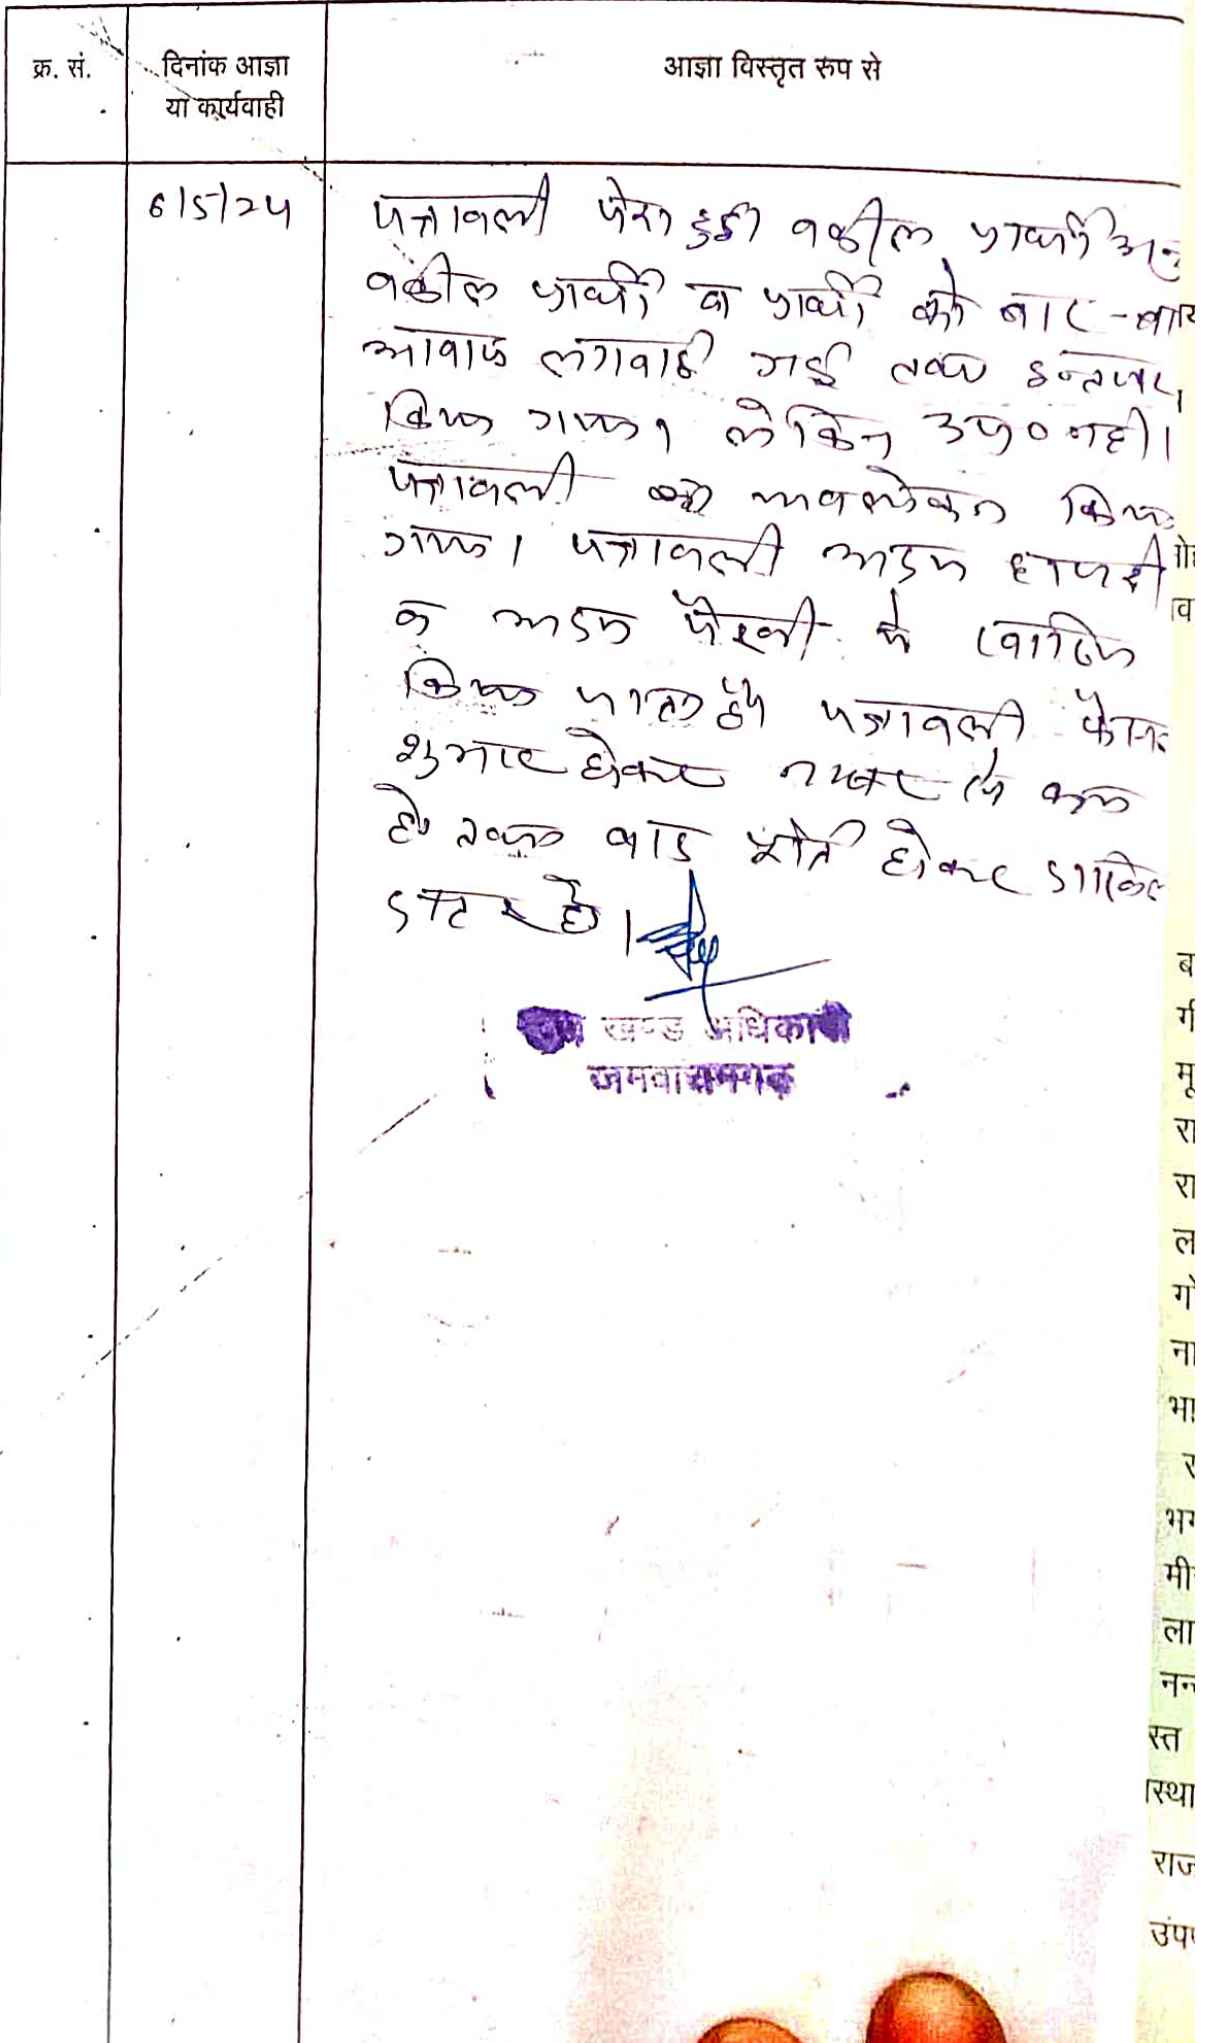 क्र. सं.
दिनांक आज्ञा
या कार्यवाही
आज्ञा विस्तृत रूप से
6/5/24
पत्रावली पेश हुई। वकील प्रार्थी अनु
वकील प्रार्थी व प्रार्थी को बार-बार
आवाज लगवाई गई तथा इन्तजार
किया गया। लेकिन उप० नही।
पत्रावली का अवलोकन किया
गया। पत्रावली अदम हाजरी
व अदम पैरवी मे खारिज
किया जाता है। पत्रावली फैसल
शुमार होकर नम्बर से कम
हो तथा बाद होकर दाखिल
दफ्तर हो।
खण्ड अधिकारी
जमवारामगढ़
गो
व
ब
गी
मू
रा
रा
ल
गो
ना
भा
र
भग
मी
ला
नन
स्त
स्था
राज
उप